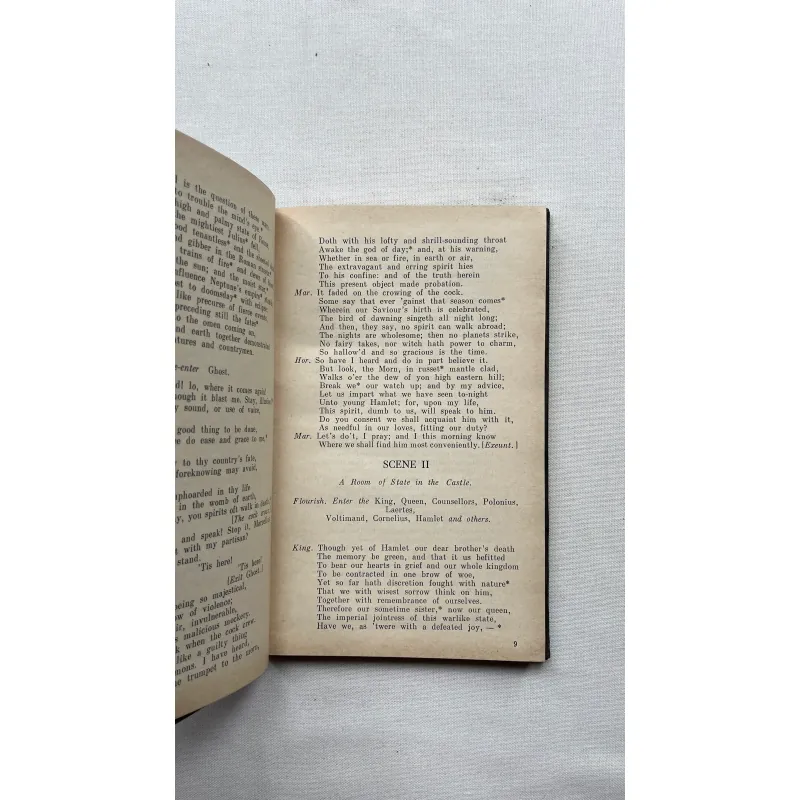 is the question of these wars.
to trouble the mind's eye*
high and palmy state of Rome
he mightiest Julius* fell
ood tenantless* and the sheeted
nd gibber in the Roman streets*
trains of fire* and dews of blood
the sun; and the moist star*
nfluence Neptune's empire* stands
st to doomsday* with eclipse:
like precurse of fierce events,
preceding still the fates*
o the omen coming on,
nd earth together demonstrated
atures and countrymen.
e-enter Ghost.
d! lo, where it comes again!
hough it blast me. Stay, illusion!
y sound, or use of voice,
good thing to be done,
e do ease and grace to me,
y to thy country's fate,
foreknowing may avoid,
uphoarded in thy life
in the womb of earth,
y, you spirits oft walk in death,
[The cock crows.]
and speak! Stop it, Marcellus.
with my partisan?
stand.
'Tis here!
'Tis here!
[Exit Ghost.]
eing so majestical,
ow of violence;
air, invulnerable,
s malicious mockery.
k when the cock crew.
like a guilty thing
mons. I have heard,
e trumpet to the morn,
Doth with his lofty and shrill-sounding throat
Awake the god of day;* and, at his warning,
Whether in sea or fire, in earth or air,
The extravagant and erring spirit hies
To his confine: and of the truth herein
This present object made probation.
Mar. It faded on the crowing of the cock.
Some say that ever 'gainst that season comes*
Wherein our Saviour's birth is celebrated,
The bird of dawning singeth all night long;
And then, they say, no spirit can walk abroad;
The nights are wholesome; then no planets strike,
No fairy takes, nor witch hath power to charm,
So hallow'd and so gracious is the time.
Hor. So have I heard and do in part believe it.
But look, the Morn, in russet* mantle clad,
Walks o'er the dew of yon high eastern hill;
Break we* our watch up; and by my advice,
Let us impart what we have seen to-night
Unto young Hamlet; for, upon my life,
This spirit, dumb to us, will speak to him.
Do you consent we shall acquaint him with it,
As needful in our loves, fitting our duty?
Mar. Let's do't, I pray; and I this morning know
Where we shall find him most conveniently. [Exeunt.]
SCENE II
A Room of State in the Castle.
Flourish. Enter the King, Queen, Counsellors, Polonius,
Laertes,
Voltimand, Cornelius, Hamlet and others.
King. Though yet of Hamlet our dear brother's death
The memory be green, and that it us befitted
To bear our hearts in grief and our whole kingdom
To be contracted in one brow of woe,
Yet so far hath discretion fought with nature*
That we with wisest sorrow think on him,
Together with remembrance of ourselves.
Therefore our sometime sister,* now our queen,
The imperial jointress of this warlike state,
Have we, as 'twere with a defeated joy, — *
9